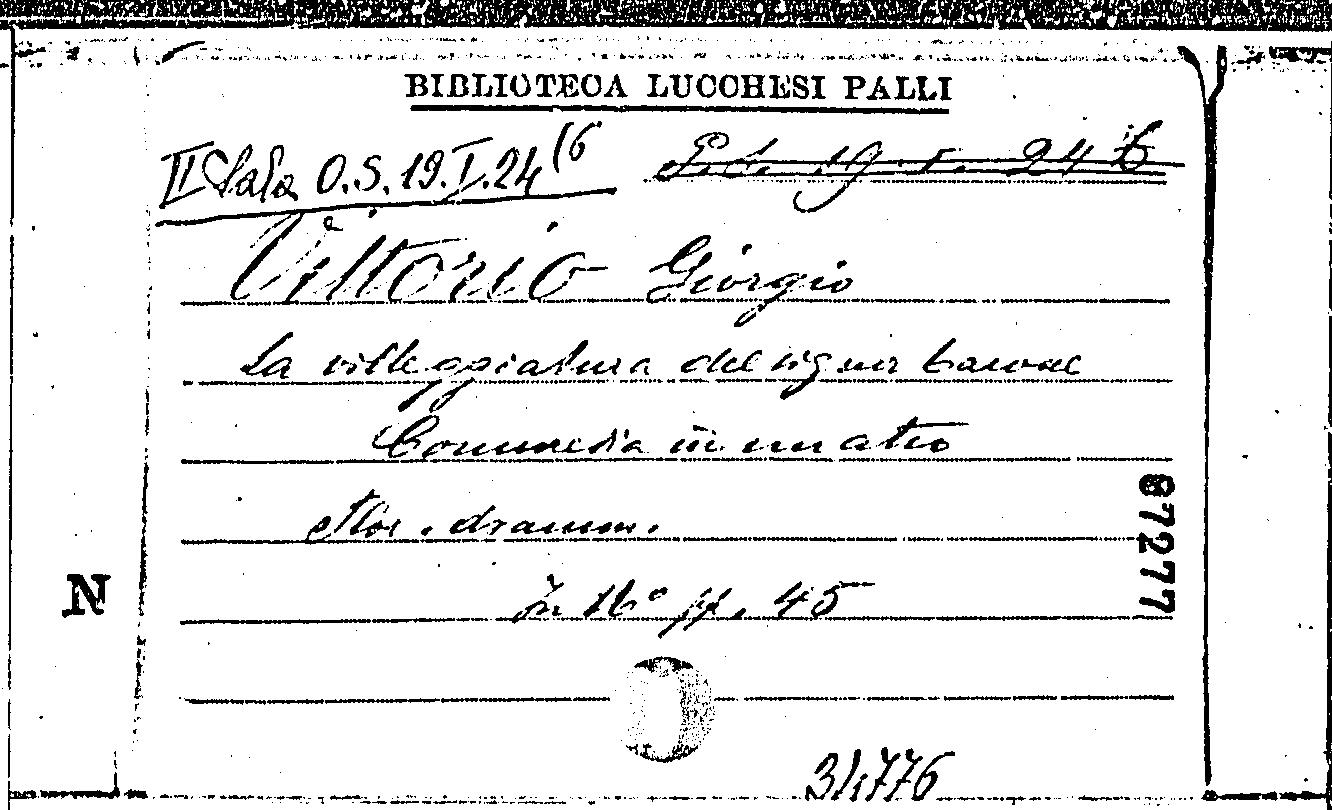 BIBLIOTECA LUCCHESI PALLI
II Sala O.S.19.I.24(6
19. I. 24 6
Vittorio Giorgio
La villeggiatura del signor barone
Commedia in un atto
dramm.
In 16° pp. 45
87277
N
34776